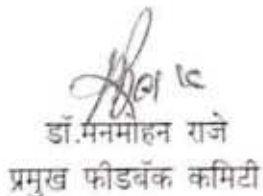 डॉ.मनमोहन राजे
प्रमुख फीडबॅक कमिटी